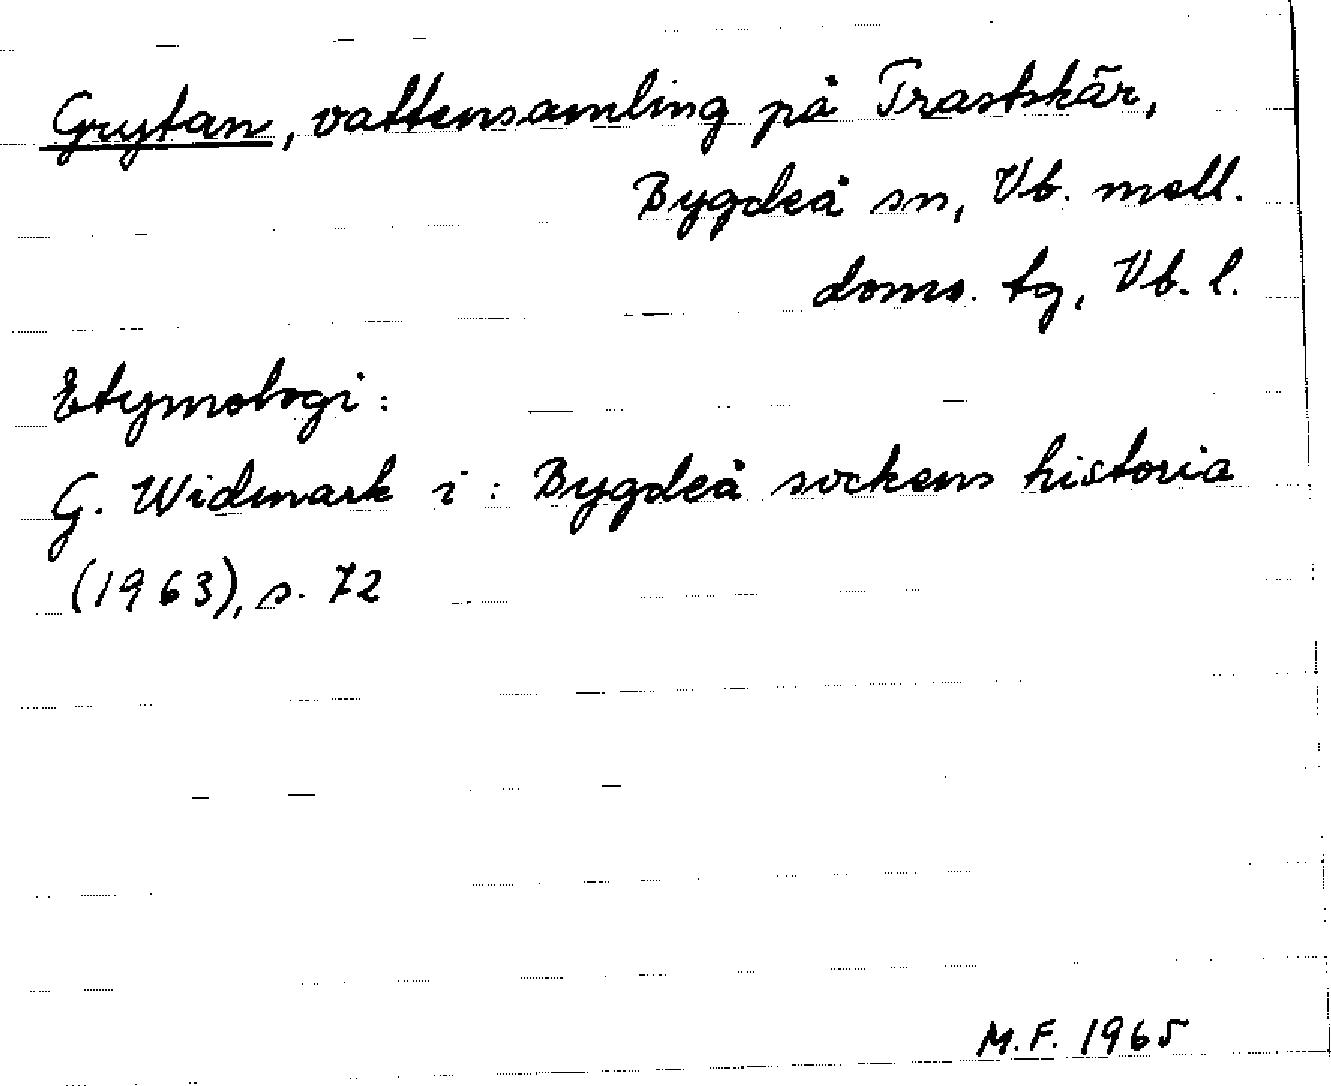 Grytan, vattensamling på Trastskär,
Bygdeå sn, Vb. mell.
doms. tg, Vb. l.
Etymologi:
G. Widmark i: Bygdeå sockens historia
(1963), s. 72
M.F. 1965